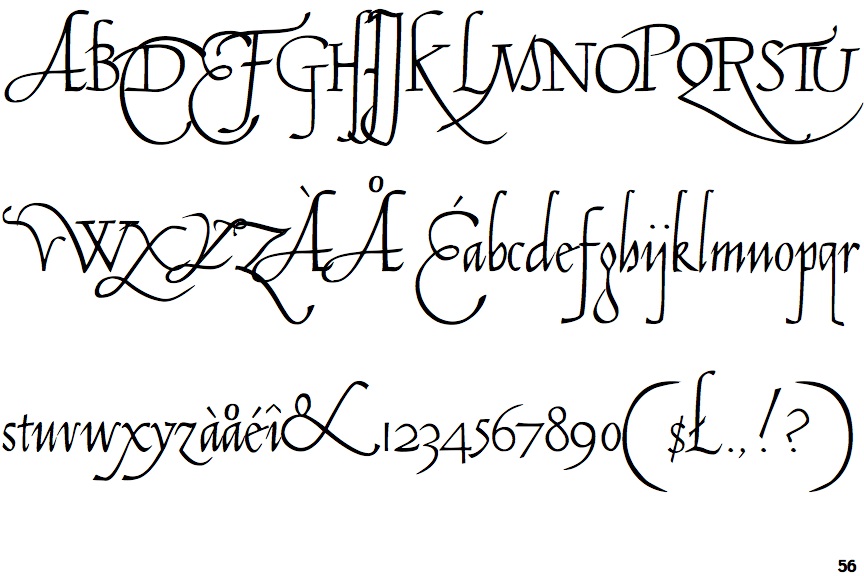 ABDEFGHIJKLMNOPQRSTU
VWXYZÀÅ Éabcdefghijklmnopqr
stuvwxyzàåéî&1234567890($Ł.,!?)
56